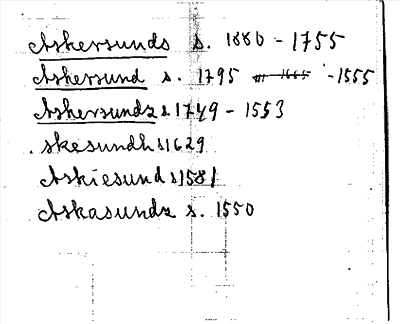 Askersunds s. 1880 - 1755
Askersund s. 1795 - 1555
Askersundz s 1749 - 1553
.skesundh s 1629
Askiesund s 1581
Askasundz s. 1550